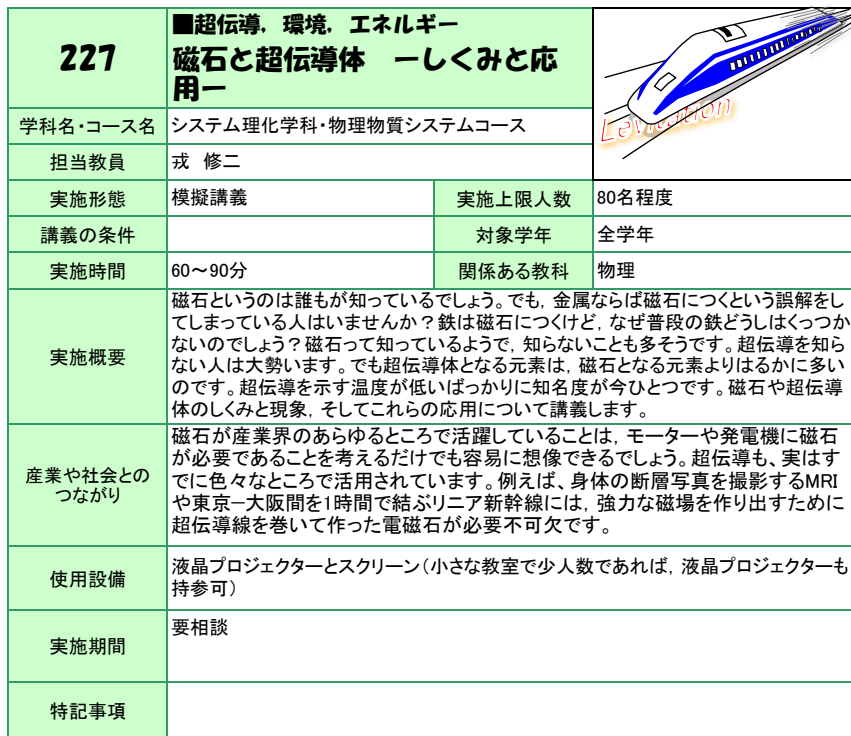 227
■超伝導，環境，エネルギー
磁石と超伝導体　ーしくみと応
用ー
Levitation
学科名・コース名
システム理化学科・物理物質システムコース
担当教員
戎　修二
実施形態
模擬講義
実施上限人数
80名程度
講義の条件
対象学年
全学年
実施時間
60～90分
関係ある教科
物理
実施概要
磁石というのは誰もが知っているでしょう。でも，金属ならば磁石につくという誤解をし
てしまっている人はいませんか？鉄は磁石につくけど，なぜ普段の鉄どうしはくっつか
ないのでしょう？磁石って知っているようで，知らないことも多そうです。超伝導を知ら
ない人は大勢います。でも超伝導体となる元素は，磁石となる元素よりはるかに多い
のです。超伝導を示す温度が低いばっかりに知名度が今ひとつです。磁石や超伝導
体のしくみと現象，そしてこれらの応用について講義します。
産業や社会との
つながり
磁石が産業界のあらゆるところで活躍していることは，モーターや発電機に磁石
が必要であることを考えるだけでも容易に想像できるでしょう。超伝導も、実はす
でに色々なところで活用されています。例えば、身体の断層写真を撮影するMRI
や東京―大阪間を1時間で結ぶリニア新幹線には，強力な磁場を作り出すために
超伝導線を巻いて作った電磁石が必要不可欠です。
使用設備
液晶プロジェクターとスクリーン（小さな教室で少人数であれば，液晶プロジェクターも
持参可）
実施期間
要相談
特記事項